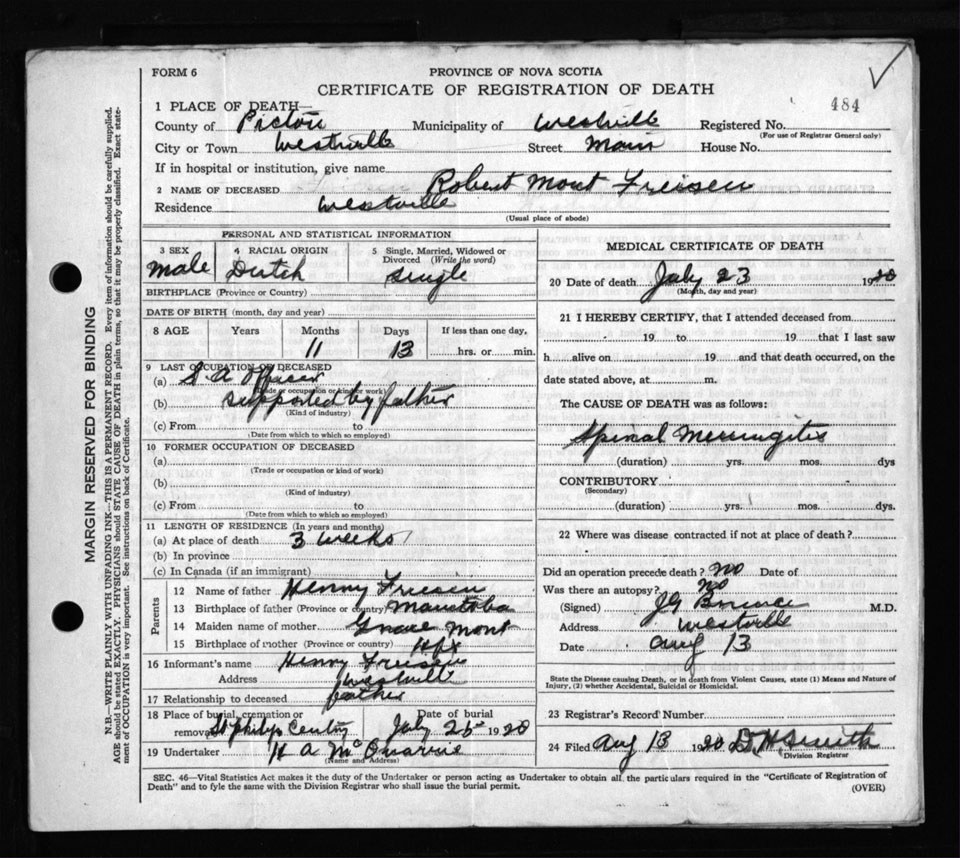 FORM 6
PROVINCE OF NOVA SCOTIA
CERTIFICATE OF REGISTRATION OF DEATH
484
1 PLACE OF DEATH—
County of Pictou Municipality of Westville Registered No.
(For use of Registrar General only)
City or Town Westville Street Main House No.
If in hospital or institution, give name
2 NAME OF DECEASED Robert Mont Freisen
Residence Westville
(Usual place of abode)
PERSONAL AND STATISTICAL INFORMATION
3 SEX 4 RACIAL ORIGIN 5 Single, Married, Widowed or Divorced (Write the word)
Male Dutch Single
BIRTHPLACE (Province or Country)
DATE OF BIRTH (month, day and year)
8 AGE Years Months Days If less than one day,
11 13 hrs. or min.
9 LAST OCCUPATION OF DECEASED
(a) S A Officer
(Trade or occupation or kind of work)
(b) supported by father
(Kind of industry)
(c) From to
(Date from which to which so employed)
10 FORMER OCCUPATION OF DECEASED
(a)
(Trade or occupation or kind of work)
(b)
(Kind of industry)
(c) From to
(Date from which to which so employed)
11 LENGTH OF RESIDENCE (In years and months)
(a) At place of death 3 weeks
(b) In province
(c) In Canada (if an immigrant)
Parents
12 Name of father Henry Freisen
13 Birthplace of father (Province or country) Manitoba
14 Maiden name of mother Grace Mont
15 Birthplace of mother (Province or country) Hfx
16 Informant's name Henry Freisen
Address Westville
17 Relationship to deceased father
18 Place of burial, cremation or removal St Philips Date of burial July 1920
19 Undertaker H A McQuarrie
(Name and Address)
MEDICAL CERTIFICATE OF DEATH
20 Date of death July 23 1920
(Month, day and year)
21 I HEREBY CERTIFY, that I attended deceased from
19 to 19 that I last saw
h alive on 19 and that death occurred, on the
date stated above, at m.
The CAUSE OF DEATH was as follows:
Spinal Meningitis
(duration) yrs. mos. dys
CONTRIBUTORY
(Secondary)
(duration) yrs. mos. dys.
22 Where was disease contracted if not at place of death?
Did an operation precede death? No Date of
Was there an autopsy? No
(Signed) J G M.D.
Address Westville
Date Aug 13
State the Disease causing Death, or in death from Violent Causes, state (1) Means and Nature of Injury, (2) whether Accidental, Suicidal or Homicidal.
23 Registrar's Record Number
24 Filed Aug 13 1920 D. H. Smith
Division Registrar
SEC. 46—Vital Statistics Act makes it the duty of the Undertaker or person acting as Undertaker to obtain all the particulars required in the "Certificate of Registration of
Death" and to fyle the same with the Division Registrar who shall issue the burial permit. (OVER)
MARGIN RESERVED FOR BINDING
N.B.—WRITE PLAINLY WITH UNFADING INK—THIS IS A PERMANENT RECORD. Every item of information should be carefully supplied.
AGE should be stated EXACTLY. PHYSICIANS should STATE CAUSE OF DEATH in plain terms, so that it may be properly classified. Exact state-
ment of OCCUPATION is very important. See instructions on back of Certificate.